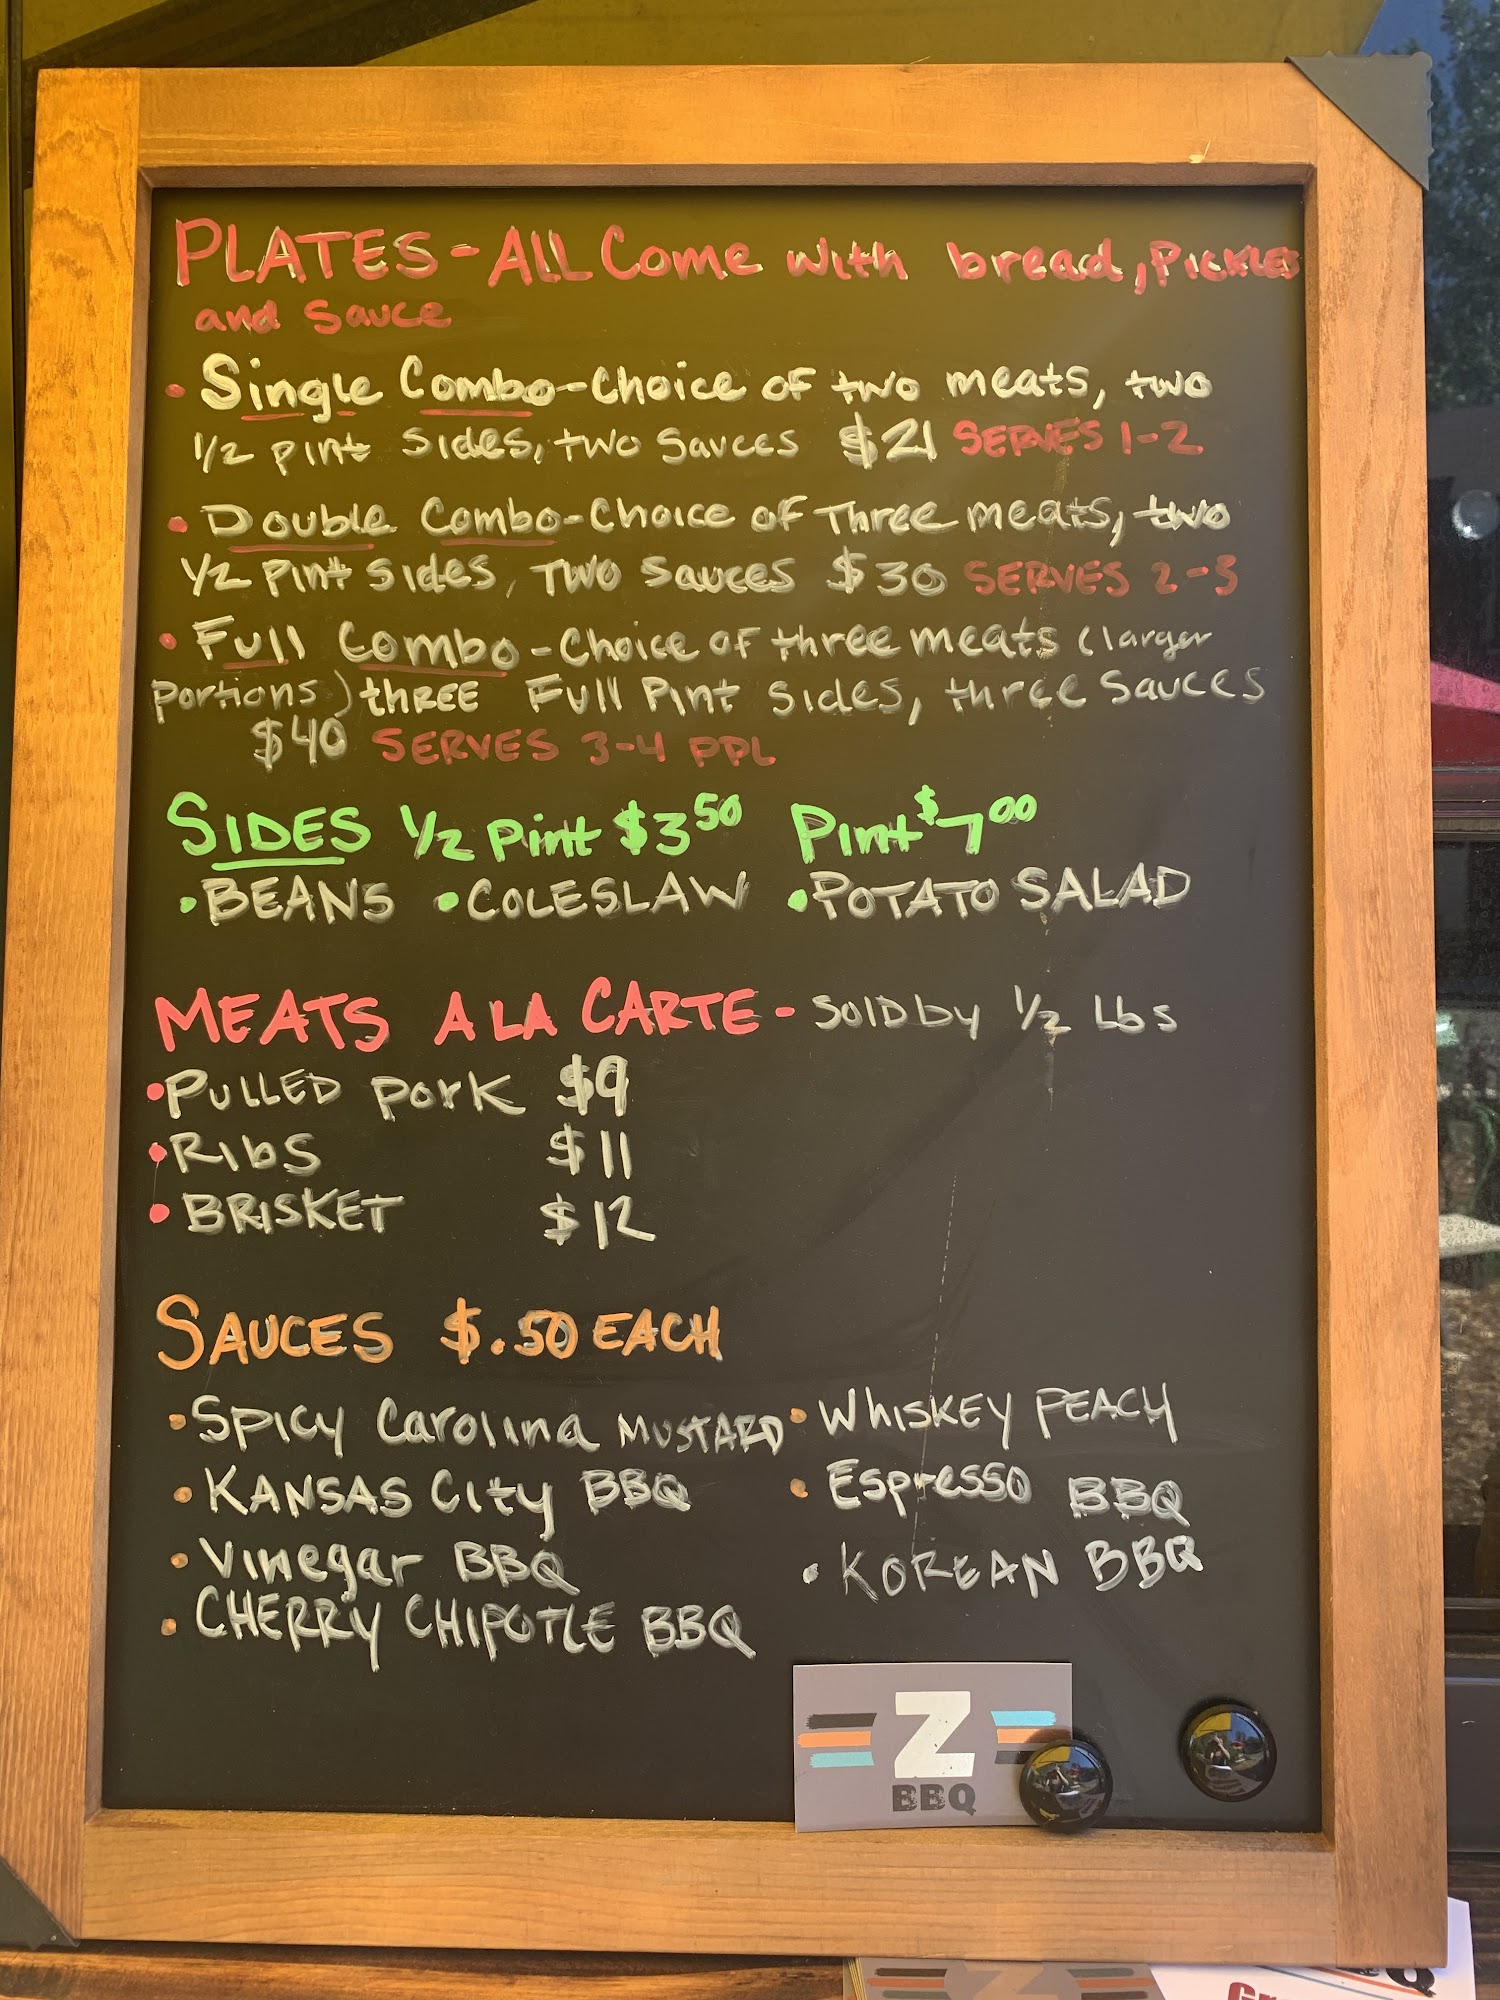 PLATES - ALL Come with bread, PICKLES
and Sauce
• Single Combo - Choice OF two meats, two
1/2 pint sides, two sauces $21 SERVES 1-2
• Double Combo - Choice OF Three meats, two
1/2 Pint sides, TWO sauces $30 SERVES 2-3
• Full Combo - Choice OF three meats (larger
portions) three Full Pint sides, three sauces
$40 SERVES 3-4 PPL
SIDES 1/2 Pint $3.50 Pint $7.00
• BEANS • COLESLAW • POTATO SALAD
MEATS A LA CARTE - Sold by 1/2 Lbs
• PULLED PORK $9
• RIbS $11
• BRISKET $12
SAUCES $.50 EACH
• SPICY Carolina MUSTARD • WHISKEY PEACH
• KANSAS City BBQ • Espresso BBQ
• Vinegar BBQ • KOREAN BBQ
• CHERRY CHIPOTLE BBQ
Z
BBQ